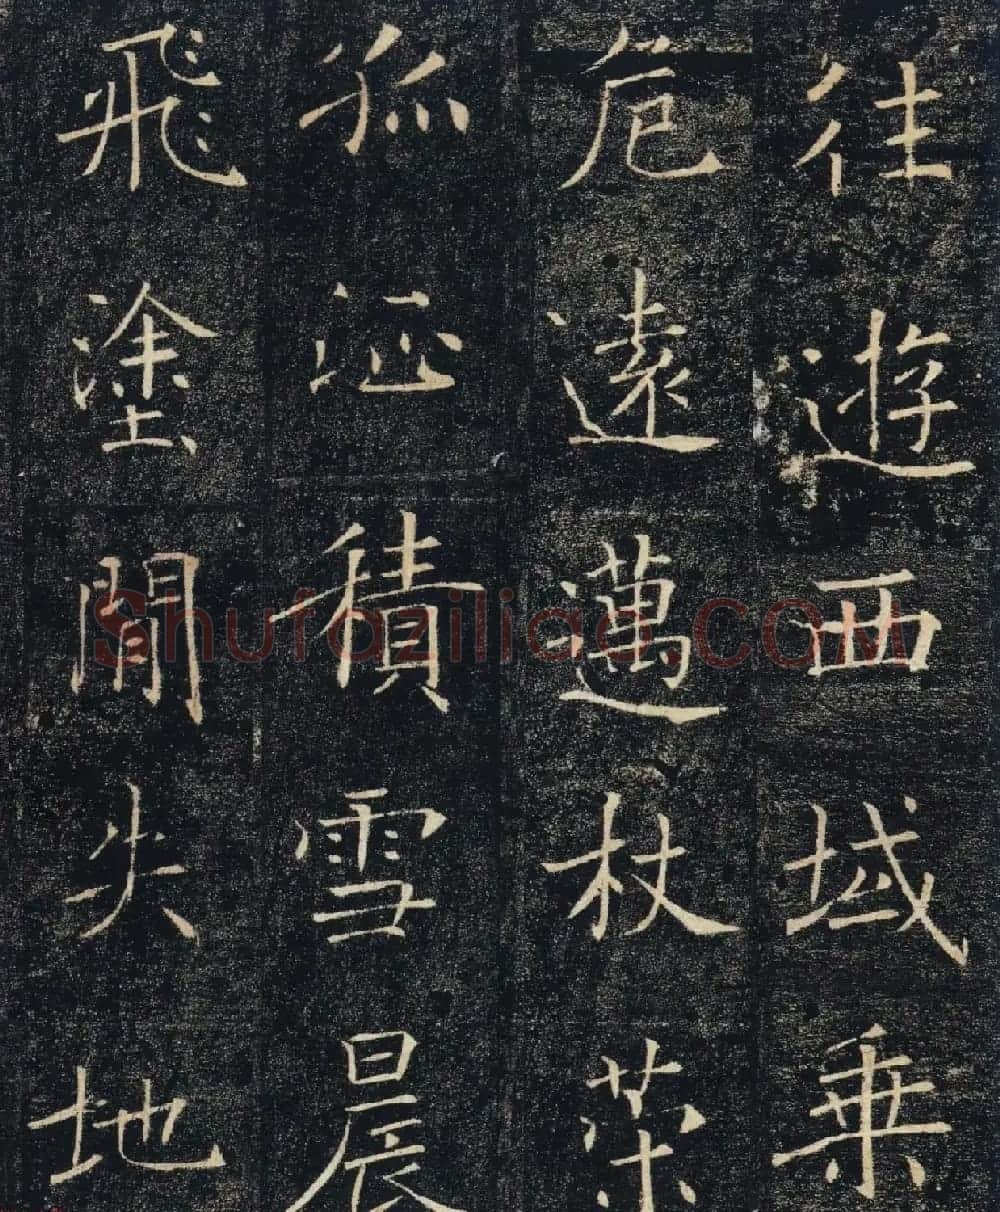 往遊西域乘
危遠邁杖策
孤征積雪晨
飛塗閒失地
Shufaziliao.COM